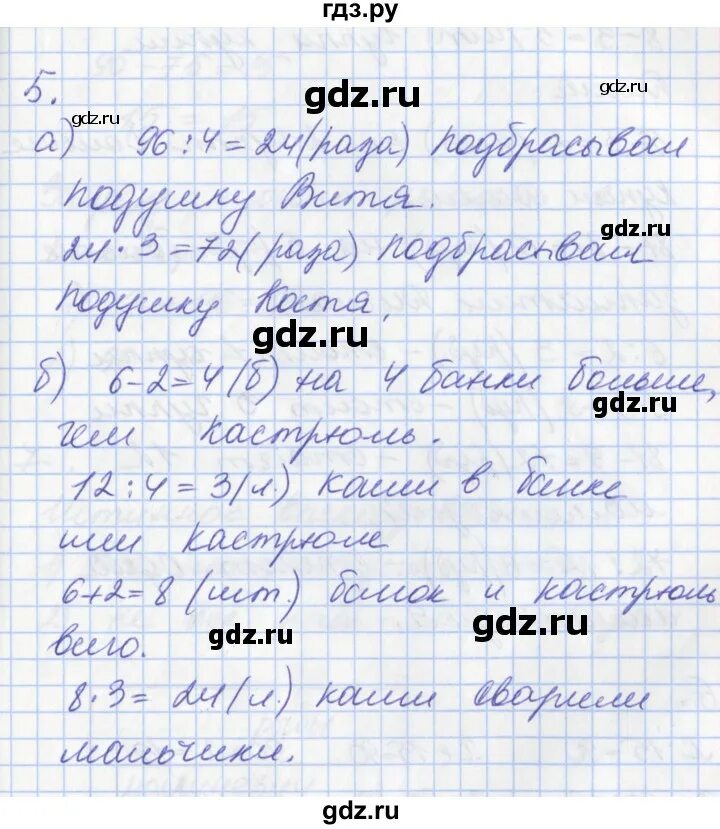 гдз.ру
5.
gdz.ru
gdz.ru
gdz.ru
а) 96 : 4 = 24 (раза) подбрасывал
подушку Витя.
gdz.ru
24 · 3 = 72 (раза) подбрасывал
подушку Костя,
gdz.ru
б) 6 - 2 = 4 (б) на 4 банки больше,
gdz.ru
чем кастрюль.
12 : 4 = 3 (л.) каши в банке
или кастрюле
6 + 2 = 8 (шт.) банок и кастрюль
gdz.ru
gdz.ru
всего.
8 · 3 = 24 (л.) каши сварили
мальчики.
gdz.ru